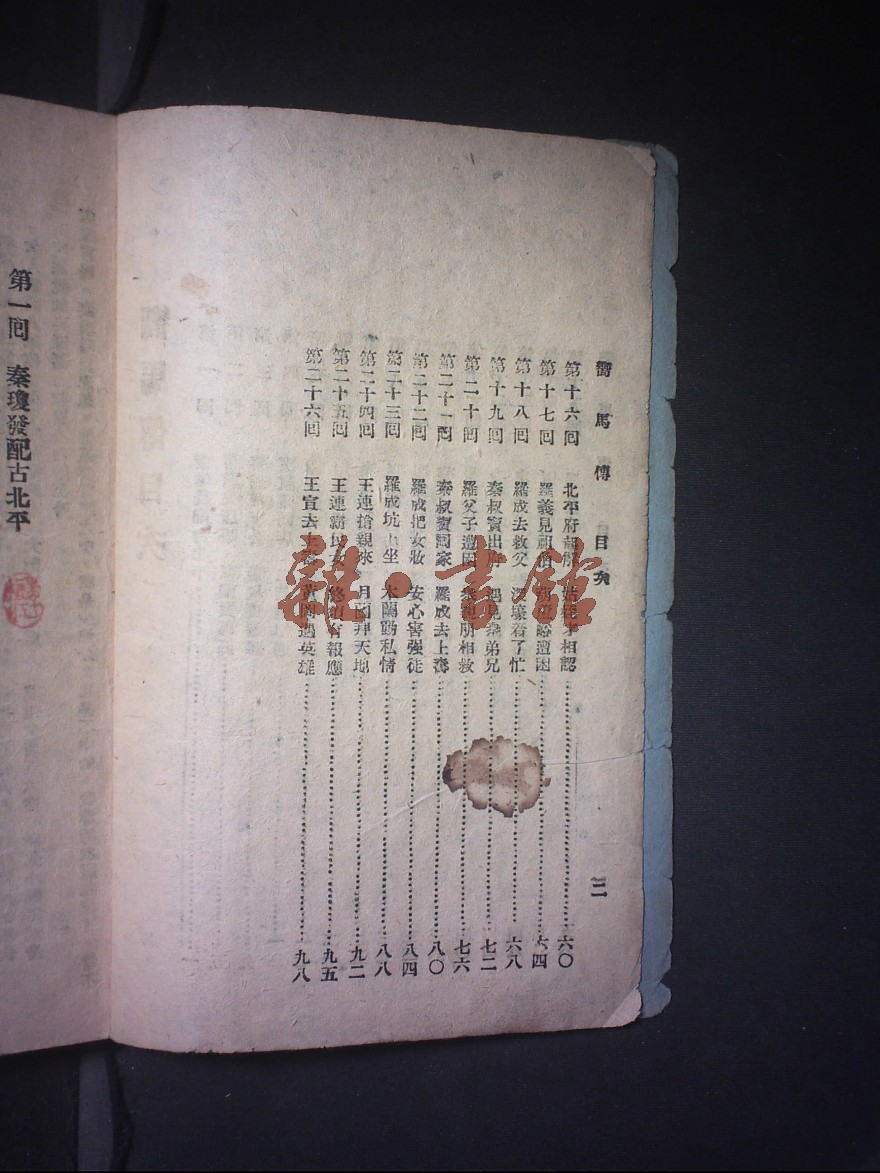 響馬傳 目次
第十六回 北平府 姑姪才相認 六〇
第十七回 羅義見 遭困 六四
第十八回 羅成去救父 着了忙 六八
第十九回 秦叔寶出 遇見衆弟兄 七二
第二十回 羅父子遭困 衆親朋相救 七六
第二十一回 秦叔寶回家 羅成去上壽 八〇
第二十二回 羅成把女妝 安心害強徒 八四
第二十三回 羅成坑上坐 木蘭動私情 八八
第二十四回 王連搶親來 月圓拜天地 九二
第二十五回 王連霸民女 終須有報應 九五
第二十六回 王宣去上 遇英雄 九八
三
第一回 秦瓊發配古北平
雜·書館